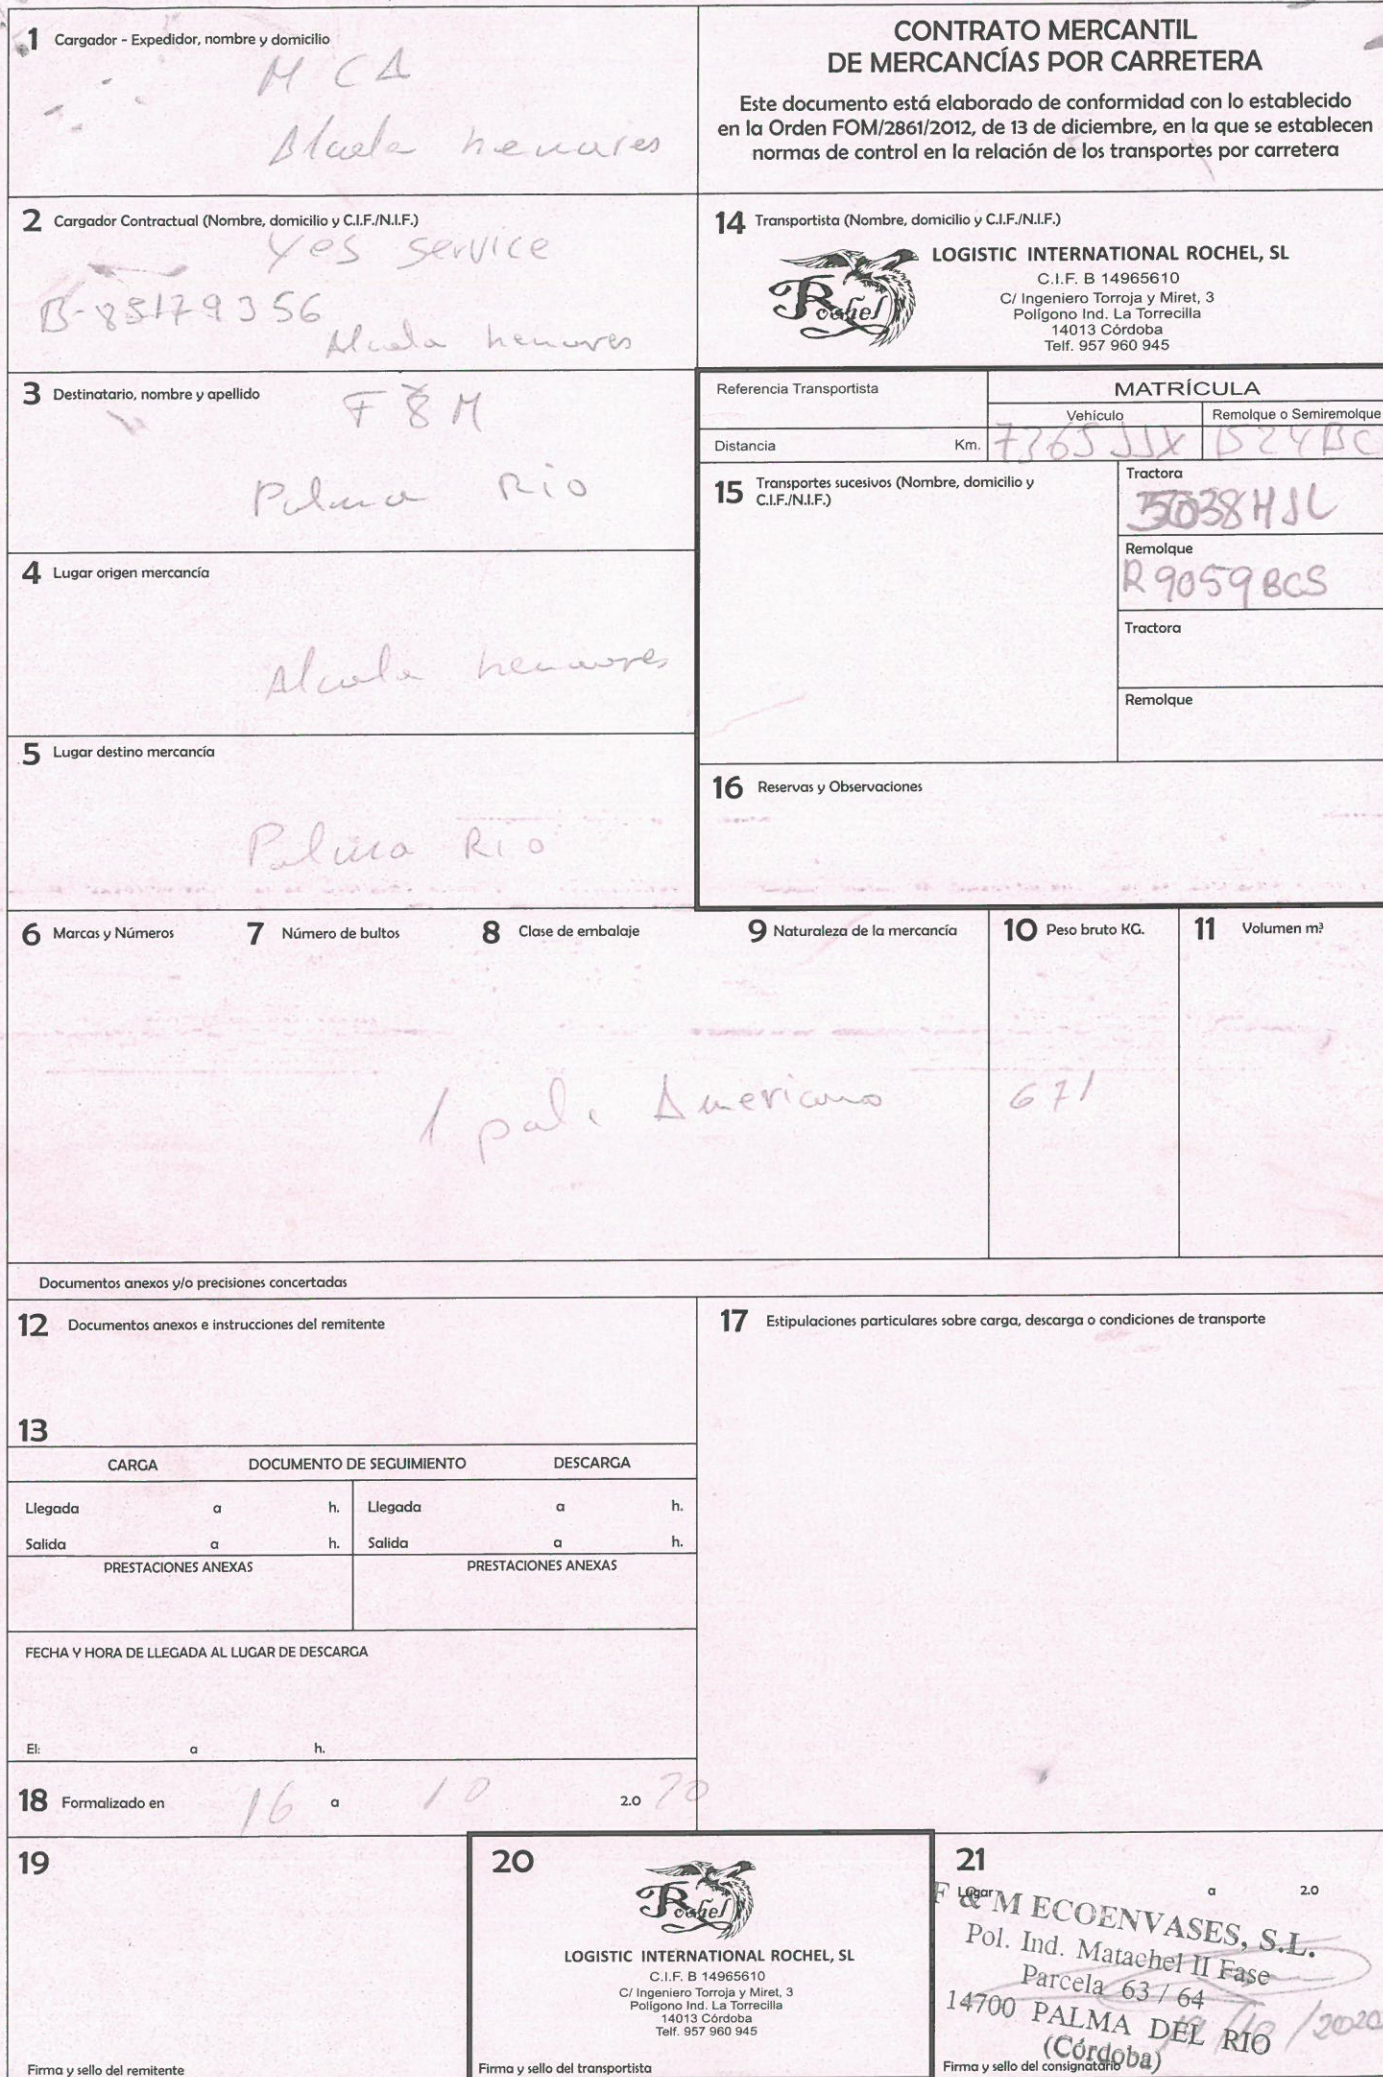 1 Cargador - Expedidor, nombre y domicilio
M C A
Alcala henares
CONTRATO MERCANTIL
DE MERCANCÍAS POR CARRETERA
Este documento está elaborado de conformidad con lo establecido
en la Orden FOM/2861/2012, de 13 de diciembre, en la que se establecen
normas de control en la relación de los transportes por carretera
2 Cargador Contractual (Nombre, domicilio y C.I.F./N.I.F.)
Yes service
B-85179356
Alcala henares
14 Transportista (Nombre, domicilio y C.I.F./N.I.F.)
Rochel
LOGISTIC INTERNATIONAL ROCHEL, SL
C.I.F. B 14965610
C/ Ingeniero Torroja y Miret, 3
Polígono Ind. La Torrecilla
14013 Córdoba
Telf. 957 960 945
3 Destinatario, nombre y apellido
F & M
Palma Rio
Referencia Transportista
MATRÍCULA
Vehículo
Remolque o Semiremolque
Distancia Km.
7365 JJX
15 Transportes sucesivos (Nombre, domicilio y
C.I.F./N.I.F.)
Tractora
Remolque
R9059BCS
Tractora
Remolque
4 Lugar origen mercancía
Alcala henares
5 Lugar destino mercancía
Palma Rio
16 Reservas y Observaciones
6 Marcas y Números
7 Número de bultos
8 Clase de embalaje
9 Naturaleza de la mercancía
10 Peso bruto KG.
11 Volumen m³
1 pale Americano
671
Documentos anexos y/o precisiones concertadas
12 Documentos anexos e instrucciones del remitente
17 Estipulaciones particulares sobre carga, descarga o condiciones de transporte
13
CARGA DOCUMENTO DE SEGUIMIENTO DESCARGA
Llegada a h. Llegada a h.
Salida a h. Salida a h.
PRESTACIONES ANEXAS PRESTACIONES ANEXAS
FECHA Y HORA DE LLEGADA AL LUGAR DE DESCARGA
El: a h.
18 Formalizado en 16 a 10 2.0 20
19
Firma y sello del remitente
20
Rochel
LOGISTIC INTERNATIONAL ROCHEL, SL
C.I.F. B 14965610
C/ Ingeniero Torroja y Miret, 3
Polígono Ind. La Torrecilla
14013 Córdoba
Telf. 957 960 945
Firma y sello del transportista
21
Lugar a 2.0
F & M ECOENVASES, S.L.
Pol. Ind. Matachel II Fase
Parcela 63 / 64
14700 PALMA DEL RIO
(Córdoba)
/2020
Firma y sello del consignatario